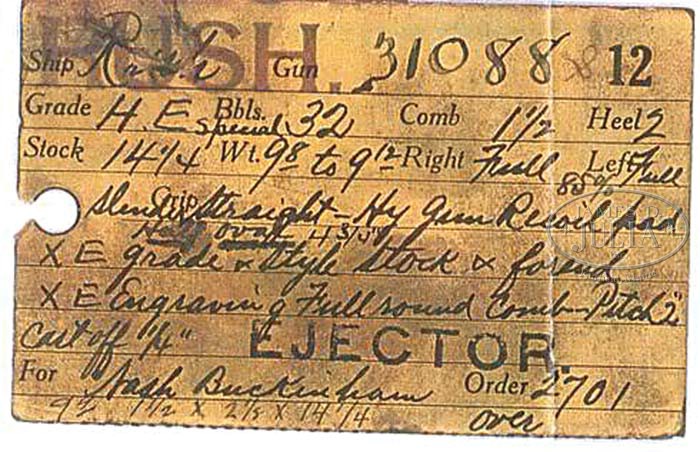 RUSH.
Ship Rush Gun 31088 12
Grade H.E Special Bbls. 32 Comb 1 1/2 Heel 2
Stock 14 1/4 Wt. 9 8 to 9 12 Right Full Left Full
85 %
Slender Straight Grip - Hy Gun Recoil pad
Half oval 4 3/4
X E grade & style stock & forend
X E Engraving Full round Comb - Pitch 2"
Cast off 1/4"
EJECTOR
For Nash Buckingham Order 2701
1 1/2 X 2 1/8 X 14 1/4 over
JULIA